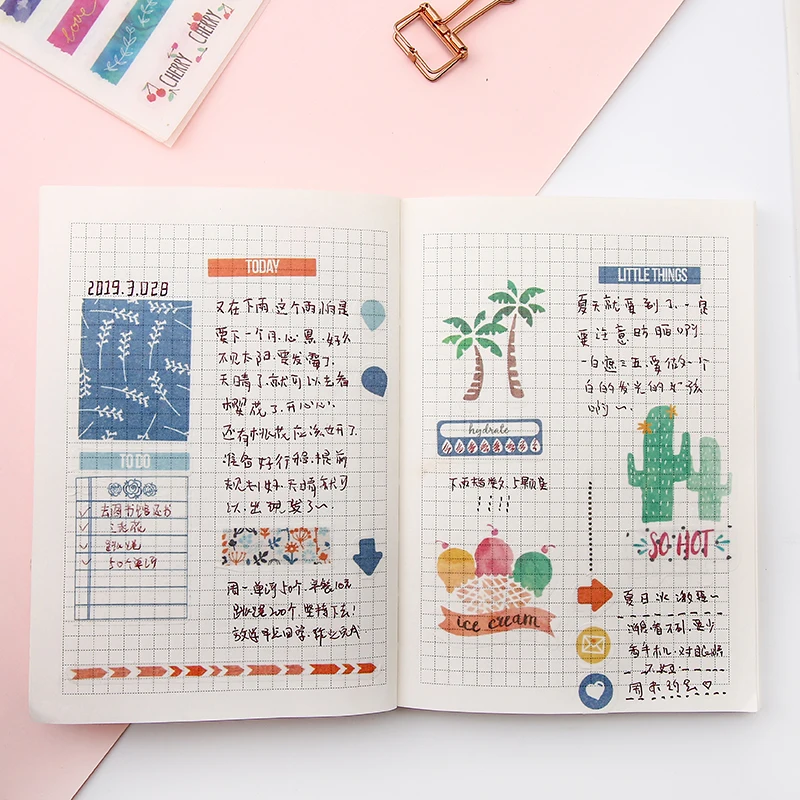 love
CHERRY
CHERRY
TODAY
2019.3.028
又在下雨.这个雨怕是
要下一个月.心累.好久
不见太阳.要发霉了.
天晴了.就可以去看
樱花了.开心心.
还有桃花应该也开了.
准备好行程.提前
规划好.天晴就可
以.出现发了~
TO DO
去图书馆还书
三花
跳绳
50个单词
周一.单词50个.早餐10元
跳绳200个.坚持下去!
LITTLE THINGS
夏天就要到了.一定
要注意防晒啊.
一白遮三丑.要做一个
白的发光的女孩
啊~
hydrate
下雨指数.5颗星
SO HOT
ice cream
夏日冰激凌~
消息看不到.要少
看手机.对眼睛
不好.
周末约会♡